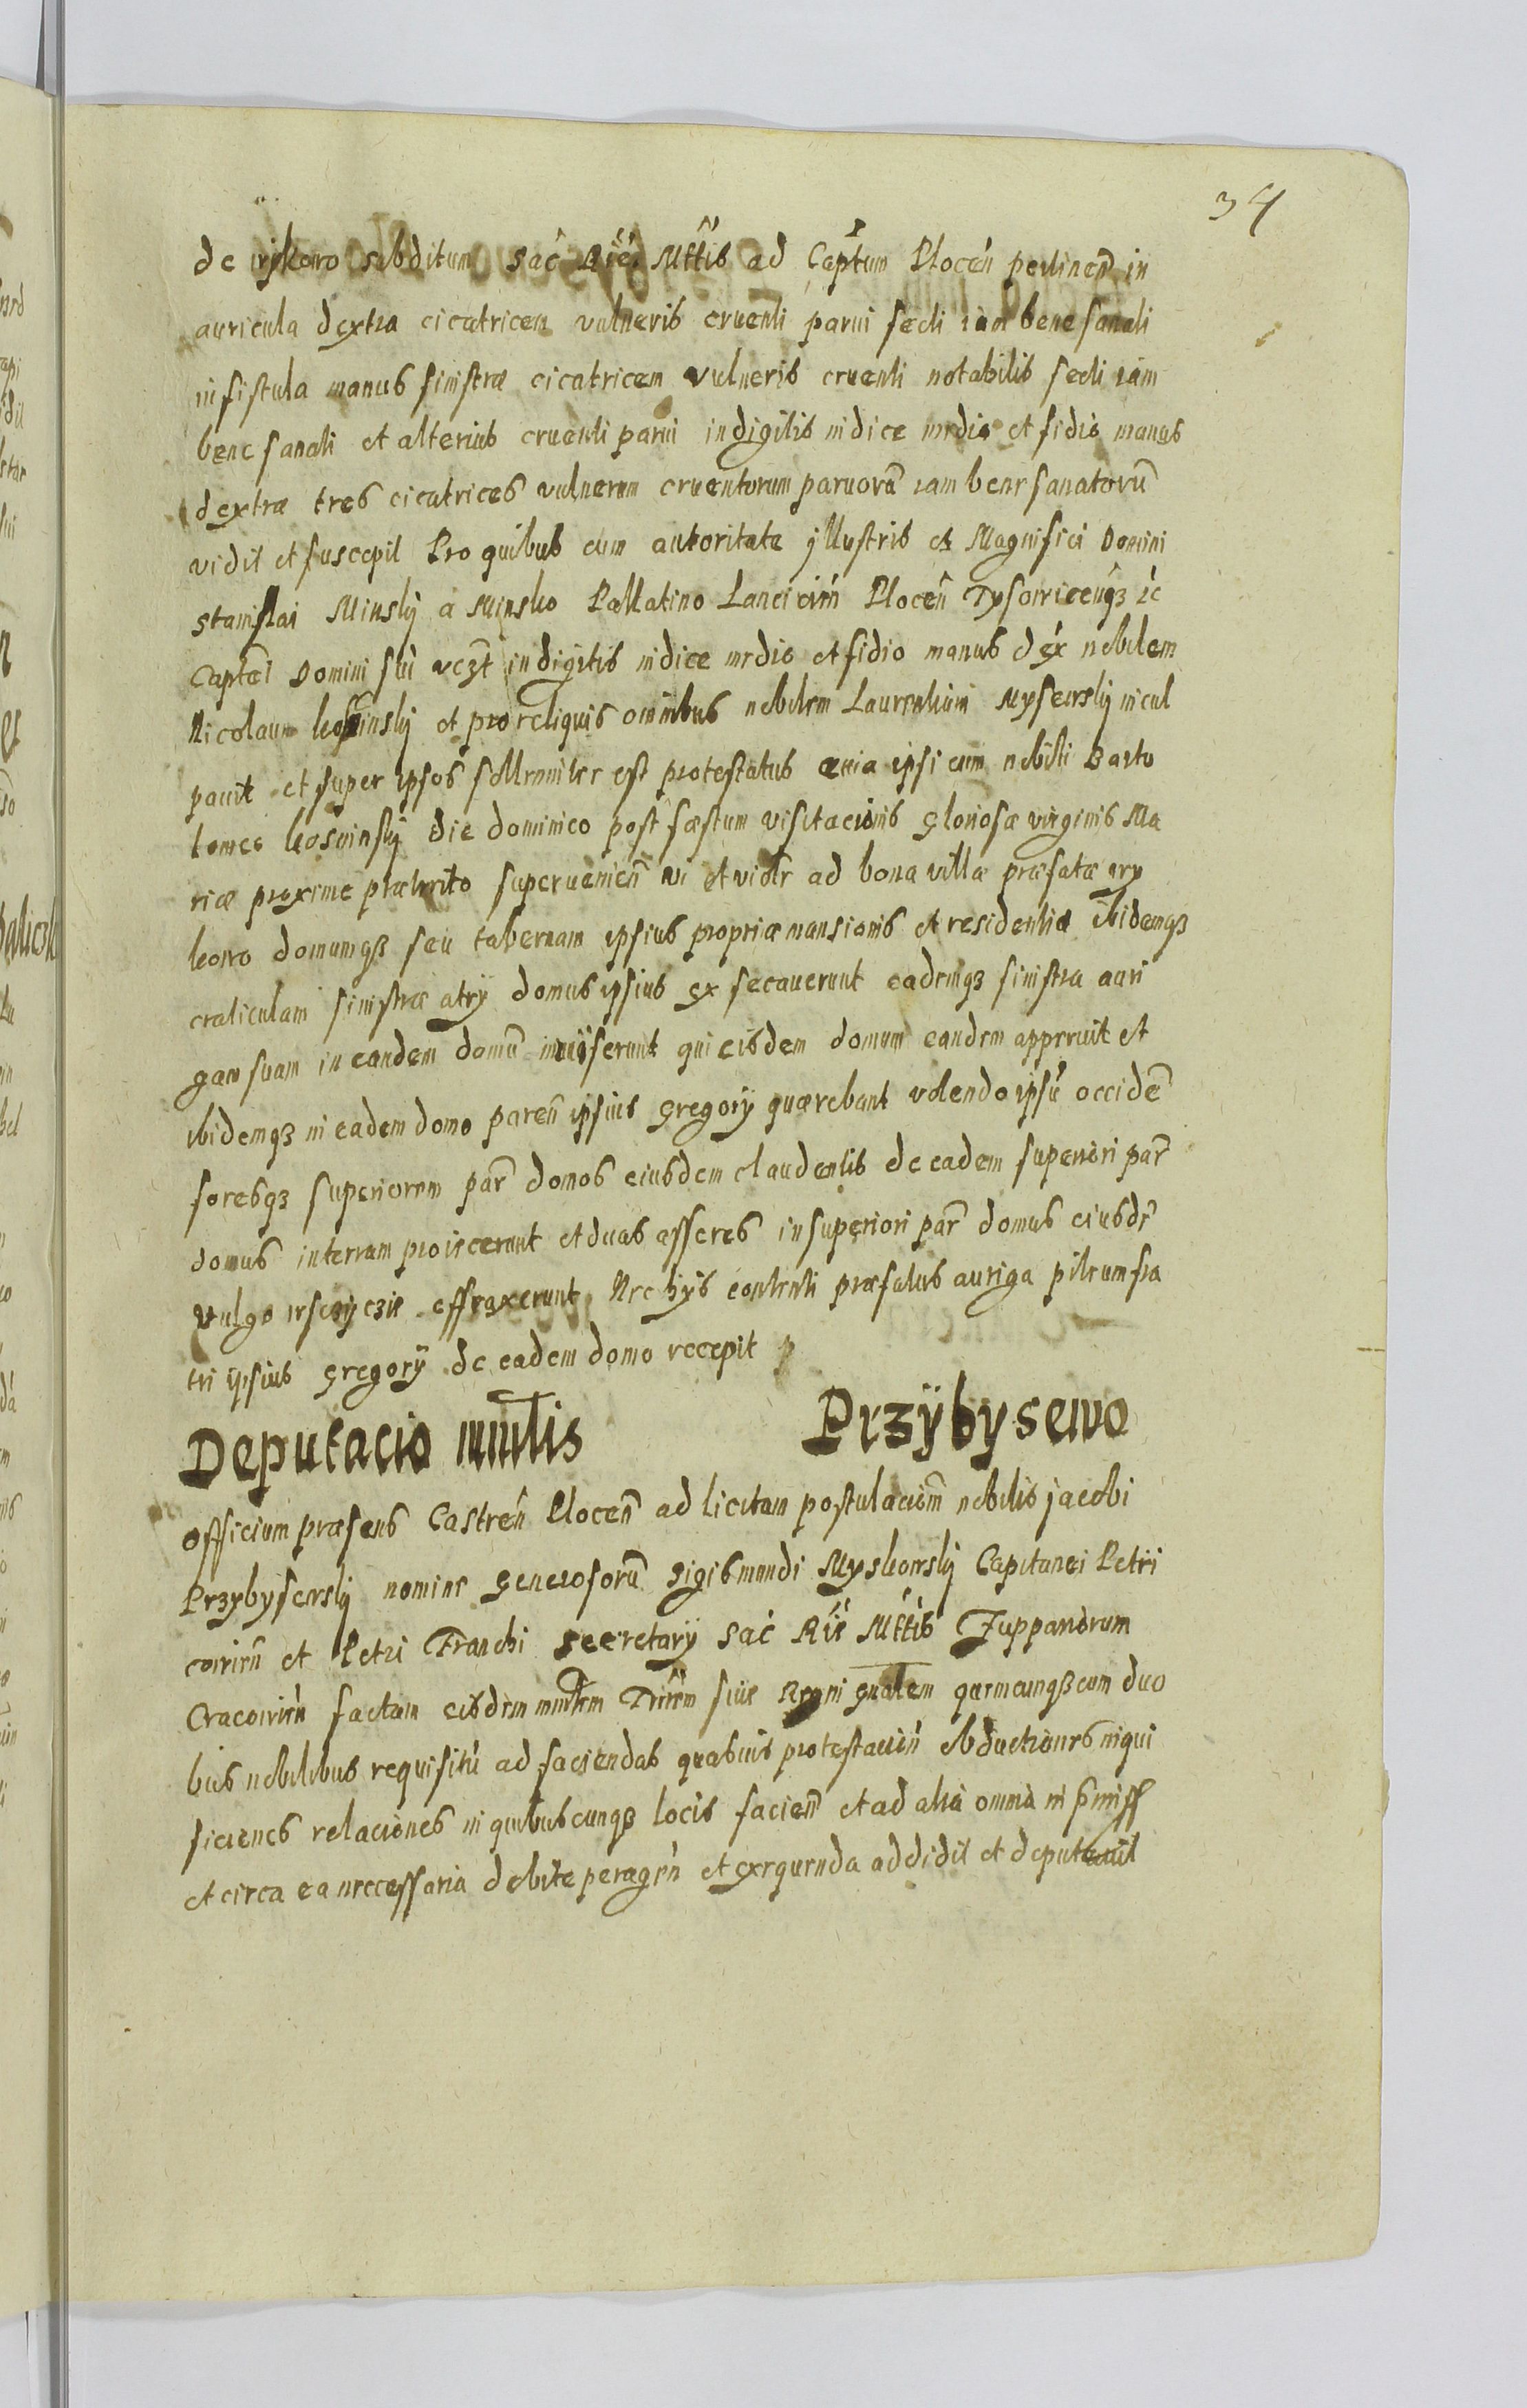 34
de subditum Sac Rie Mttis ad Captum Plocen pertinen in
auricula dextra cicatricem vulneris cruenti parui secti iam bene sanati
in fistula manus sinistræ cicatricem vulneris cruenti notabilis secti iam
bene sanati et alterius cruenti parui in digitis indice medio et fidio manus
dextræ tres cicatrices vulnerum cruentorum paruorū iam bene sanatorū
vidit et suscepit Pro quibus cum autoritate jllustris et Magnifici Domini
Stanislai Minskij a Minsko Pallatino Lancicien Plocen Tysouicenqз ꝛc
Captei Domini sui vczt in digitis indice medio et fidio manus dex nobilem
Nicolaum et pro reliquis omnibus nobilem Laurentium incul
pauit et super ipsos sollemniter est protestatus quia ipsi cum nobili Barto
lomeo Kosminskij die dominico post fæstum visitacionis gloriosæ virginis Ma
riæ proxime præterito superuenien vi et violr ad bona villæ præfatæ
kowo domumqз seu tabernam ipsius propriæ mansionis et residentiæ ibidemqз
craticulam sinistræ atrij domus ipsius exsecauerunt eademqз sinistra auri
gam suam in eandem domū immiserunt qui eisdem domum eandem apperuit et
ibidemqз in eadem domo paren ipsius Gregorij quærebant volendo ipsū occide
foresqз superiorem par domos eiusdem claudentis de eadem superiori par
domus in terram proiecerunt et duas asseres in superiori par domus eiusde
vulgo effregerunt Nec hijs contenti præfatus auriga pileum fra
tri ipsius Gregorij de eadem domo recepit
Deputacio mintlis Przÿbysewo
Officium præsens Castren Plocen ad licitam postulacioem nobilis jacobi
Przybysewskij nomine Generosorū Sigismundi Myskowskij Capitanei Petri
couien et Petri Franchi Secretarij Sac Rie Mttis Zuppariorum
Cracouien factam eisdem mintrem Trrem siue Regni gnalem quemcunqз cum duo
bus nobilibus requisitū ad faciendas quasuis protestacion obductiones inqui
siciones relaciones in quibuscunqз locis facien et ad alia omnia in pmiss
et circa ea necessaria debite peragen et exequenda addidit et deputauit